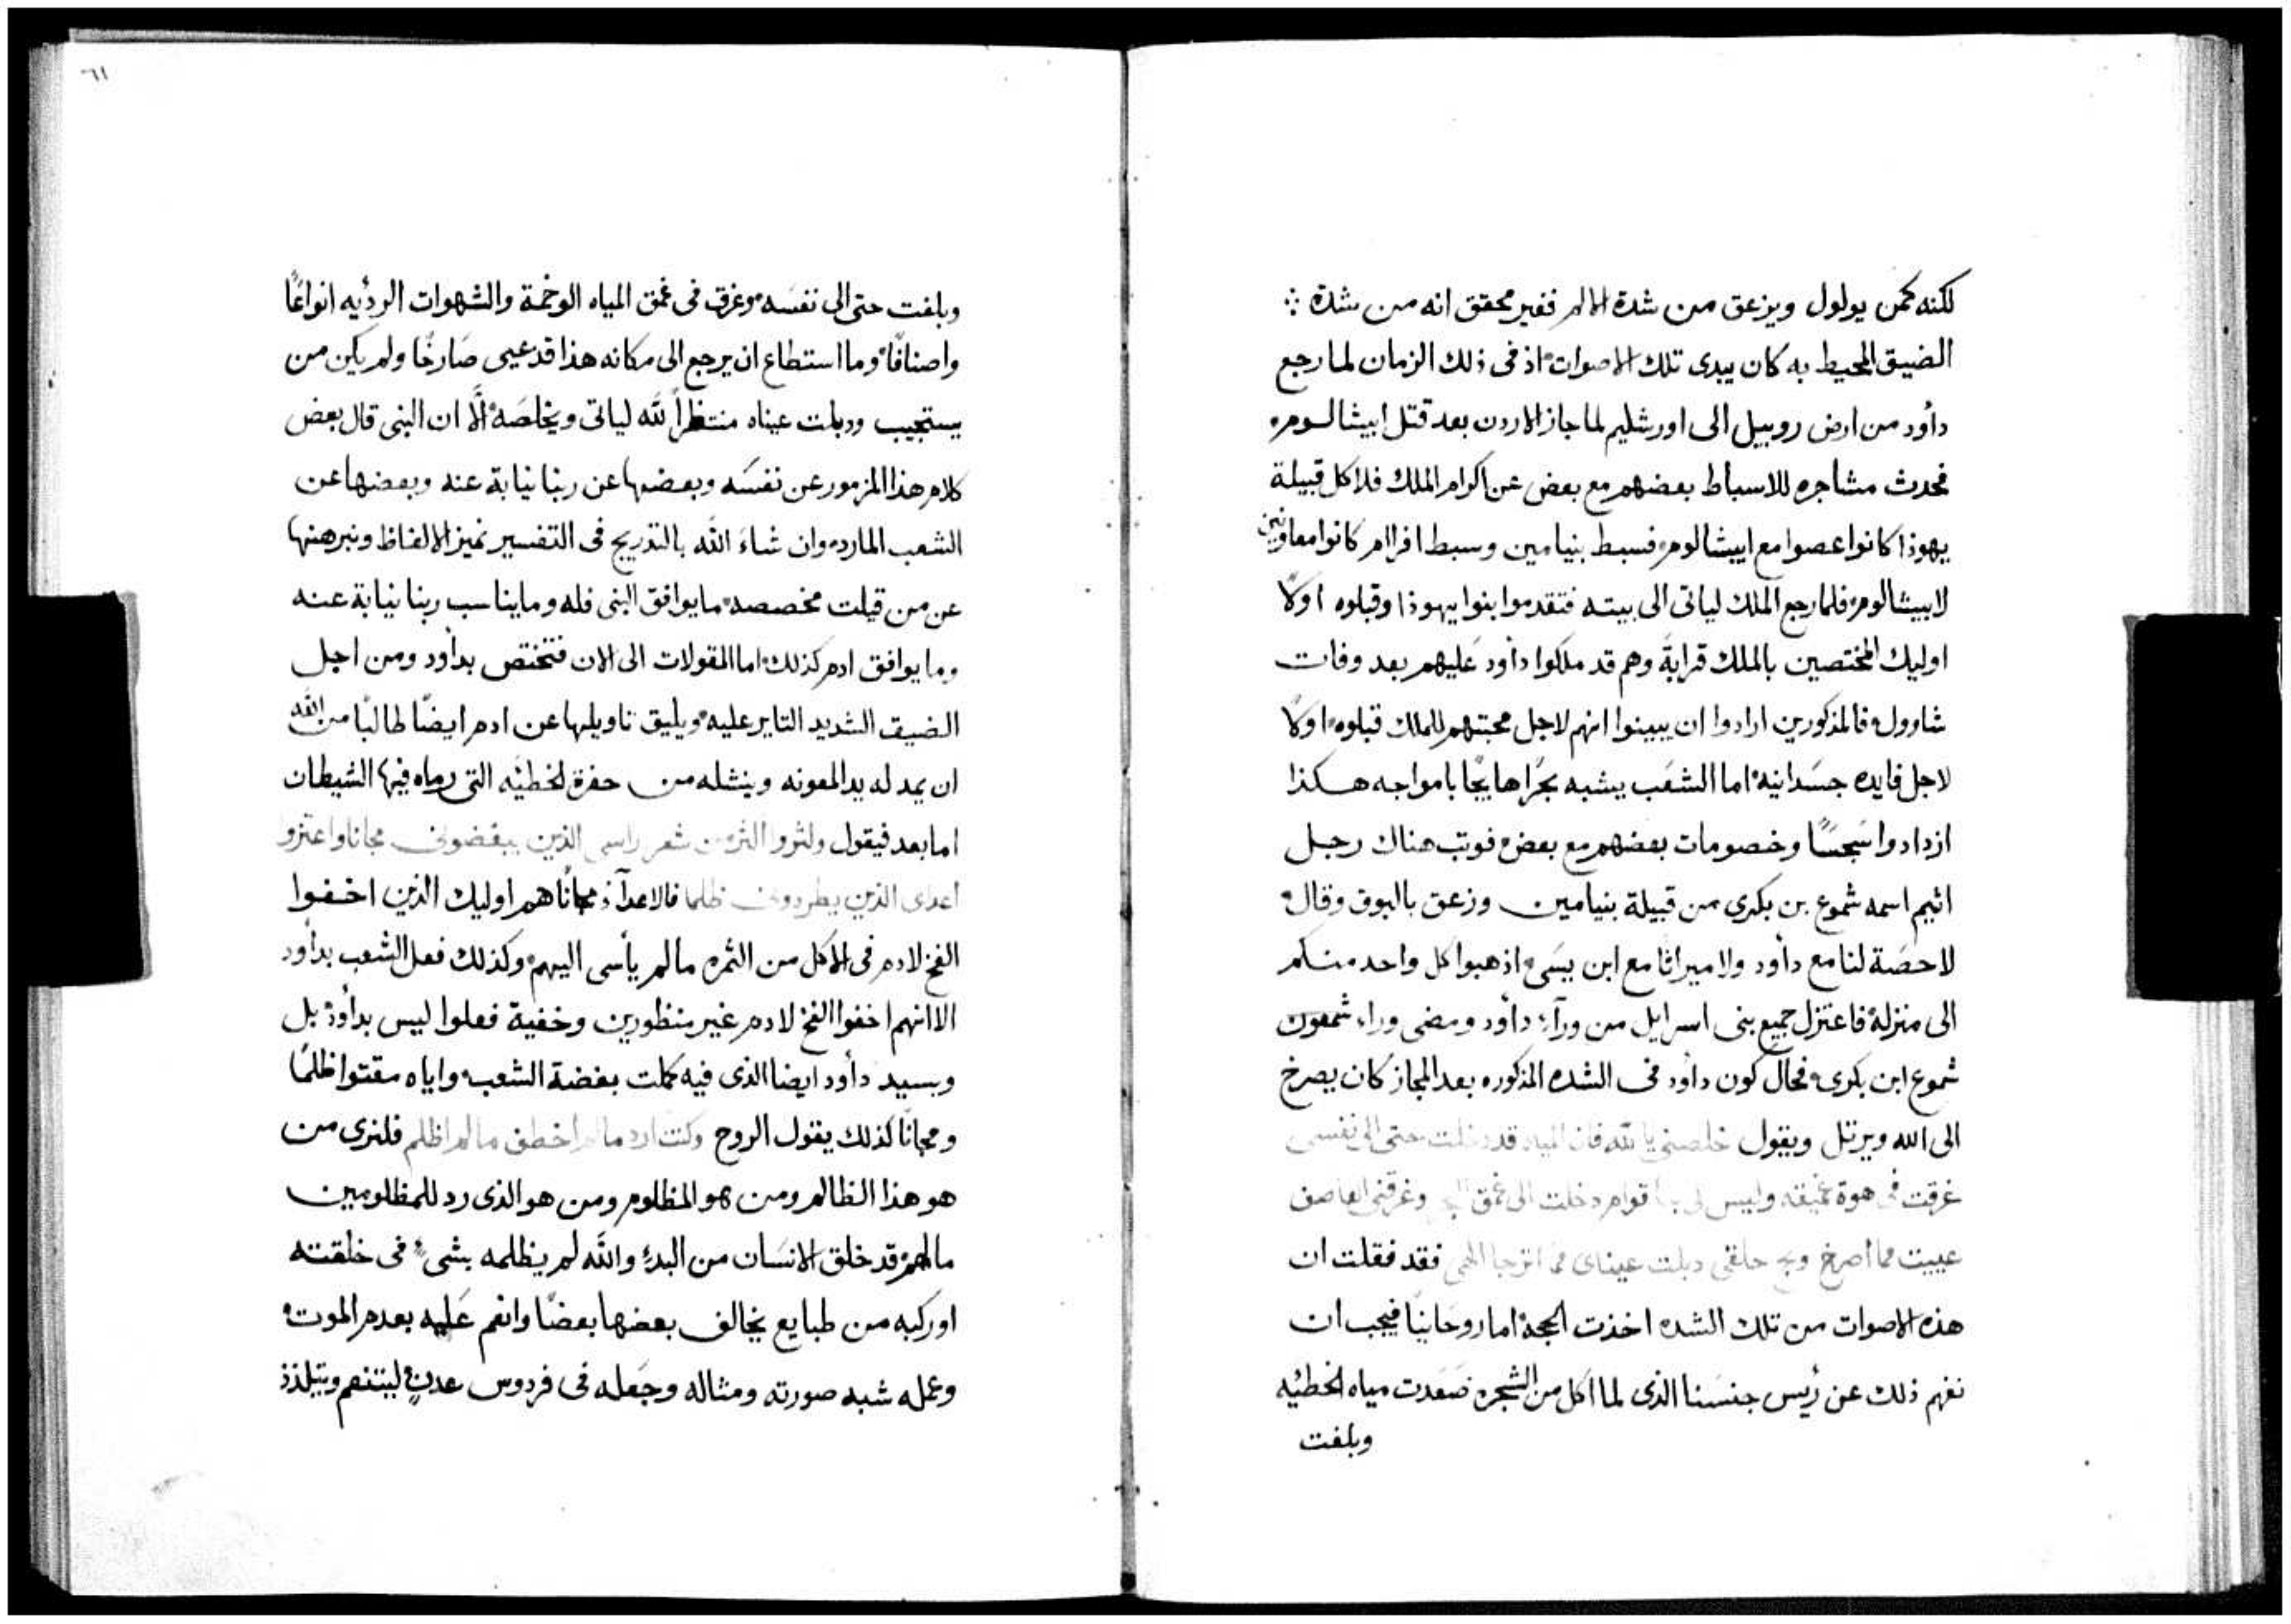 لكنه كمن يولول ويزعق من شدة الالم فغير محقق انه من شدة
الضيق المحيط به كان يبدى تلك الاصوات اذ فى ذلك الزمان لما رجع
داود من ارض روبيل الى اورشليم لما جاز الاردن بعد قتل ابيشالوم
فحدث مشاجره للاسباط بعضهم مع بعض عن اكرام الملك فلا كل قبيلة
يهوذا كانوا عصوا مع ابيشالوم فسبط بنيامين وسبط افرام كانوا معاونين
لابيشالوم فلما رجع الملك لياتى الى بيته فتقدموا بنوا يهوذا وقبلوه اولاً
اوليك المختصين بالملك قرابةً وهم قد ملكوا داود عليهم بعد وفات
شاوول فالمذكورين ارادوا ان يبينوا انهم لاجل محبتهم للملك قبلوه اولاً
لاجل فايده جسدانيه اما الشعب يشبه بحرًا هايجًا بامواجه هكذا
ازدادوا سجسًا وخصومات بعضهم مع بعض فوتب هناك رجل
اثيم اسمه شموع بن بكرى من قبيلة بنيامين وزعق بالبوق وقال
لا حصة لنا مع داود ولا ميراثا مع ابن يسى اذهبوا كل واحد منكم
الى منزله فاعتزل جميع بنى اسرايل من ورآء داود ومضى وراء شمعون
شموع ابن بكرى فحال كون داود فى الشده المذكوره بعد المجاز كان يصرخ
الى الله ويرتل ويقول خلصنى يا لله فان المياه قد دخلت حتى الى نفسى
غرقت فى هوة عميقه وليس لى بها قوام دخلت الى عمق البحر وغرقنى العاصف
عييت مما اصرخ وبح حلقى دبلت عيناى مما اترجا الهى فقد فقلت ان
هذه الاصوات من تلك الشده اخذت الحجه اما روحانيًا فيجب ان
نفهم ذلك عن رئيس جنسنا الذى لما اكل من الشجره صعدت مياه الخطئيه
وبلغت
٦١
وبلغت حتى الى نفسه وغرق فى عمق المياه الوخمة والشهوات الردئيه انواعًا
واصنافًا وما استطاع ان يرجع الى مكانه هذا قد عيى صارخًا ولم يكن من
يستجيب ودبلت عيناه منتظراً لله لياتى ويخلصه الَّا ان النبى قال بعض
كلام هذا المزمور عن نفسه وبعضها عن ربنا نيابة عنه وبعضها عن
الشعب المارد وان شاءَ الله بالتدريج فى التفسير نميز الالفاظ ونبرهنها
عن من قيلت مخصصه ما يوافق النبى فله وما يناسب ربنا نيابة عنه
وما يوافق ادم كذلك اما المقولات الى الان فتختص بداود ومن اجل
الضيق الشديد التاير عليه ويليق تاويلها عن ادم ايضًا طالبًا من الله
ان يمد له يد المعونه وينشله من حفرة الخطئيه التى رماه فيها الشيطان
اما بعد فيقول ولثروا اكثر من شعر راسى الذين يبغضونى مجانا واعتزوا
اعداى الذين يطردونى ظلما فالاعدآء مجانًا هم اوليك الذين اخفوا
الفخ لادم فى الاكل من الثمره ما لم يأسى اليهم وكذلك فعل الشعب بداود
الا انهم اخفوا الفخ لادم غير منظورين وخفية فعلوا ليس بداود بل
وبسيد داود ايضا الذى فيه كملت بغضة الشعب واياه مقتوا ظلمًا
ومجانًا كذلك يقول الروح وكنت ارد ما لم اخطف ما لم اظلم فلنرى من
هو هذا الظالم ومن هو المظلوم ومن هو الذى رد للمظلومين
ما لهم قد خلق الانسان من البدء والله لم يظلمه بشىء فى خلقته
او ركبه من طبايع يخالف بعضها بعضًا وانعم عليه بعدم الموت
وعمله شبه صورته ومثاله وجعله فى فردوس عدنٍ ليتنعم ويتلذذ